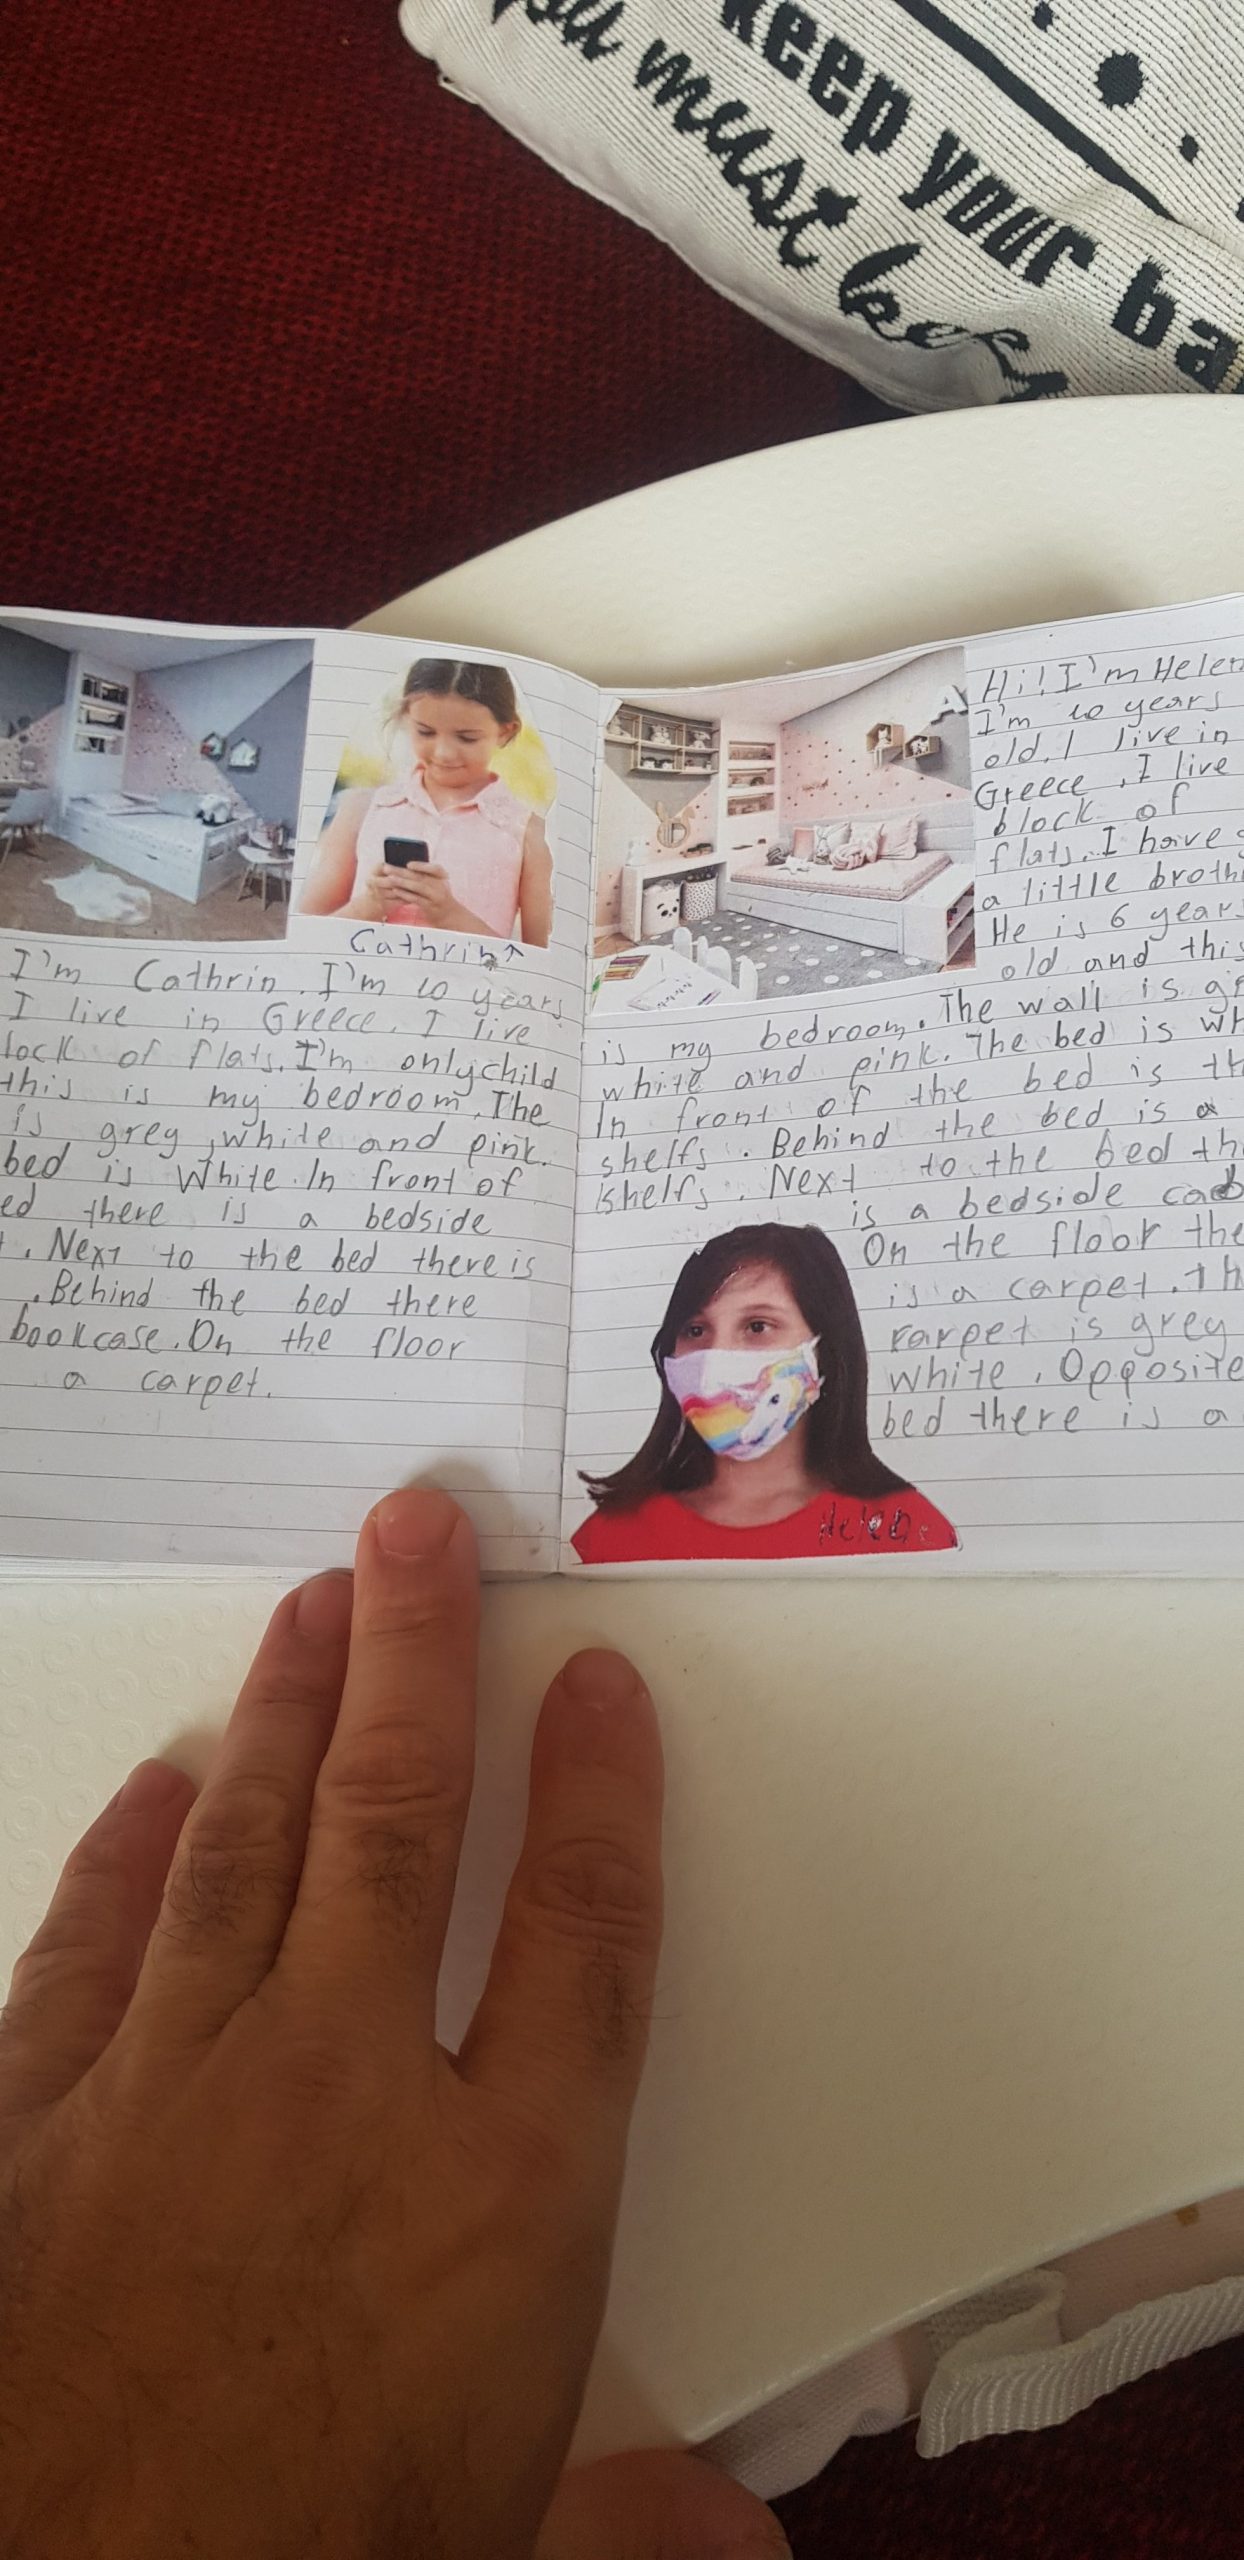 keep your ba
you must bef
Cathrin
I'm Cathrin. I'm 10 years
I live in Greece. I live
lock of flats. I'm onlychild
this is my bedroom. The
is grey, white and pink.
bed is White. In front of
ed there is a bedside
t. Next to the bed there is
. Behind the bed there
bookcase. On the floor
a carpet.
A
Hi! I'm Helen
I'm 10 years
old. I live in
Greece. I live
block of
flats. I have
a little broth
He is 6 years
old and this
is my bedroom. The wall is gr
white and pink. The bed is wh
In front of the bed is th
shelfs. Behind the bed is a
shelfs. Next to the bed th
is a bedside cab
On the floor the
is a carpet. th
carpet is grey
white. Opposite
bed there is a
Helene